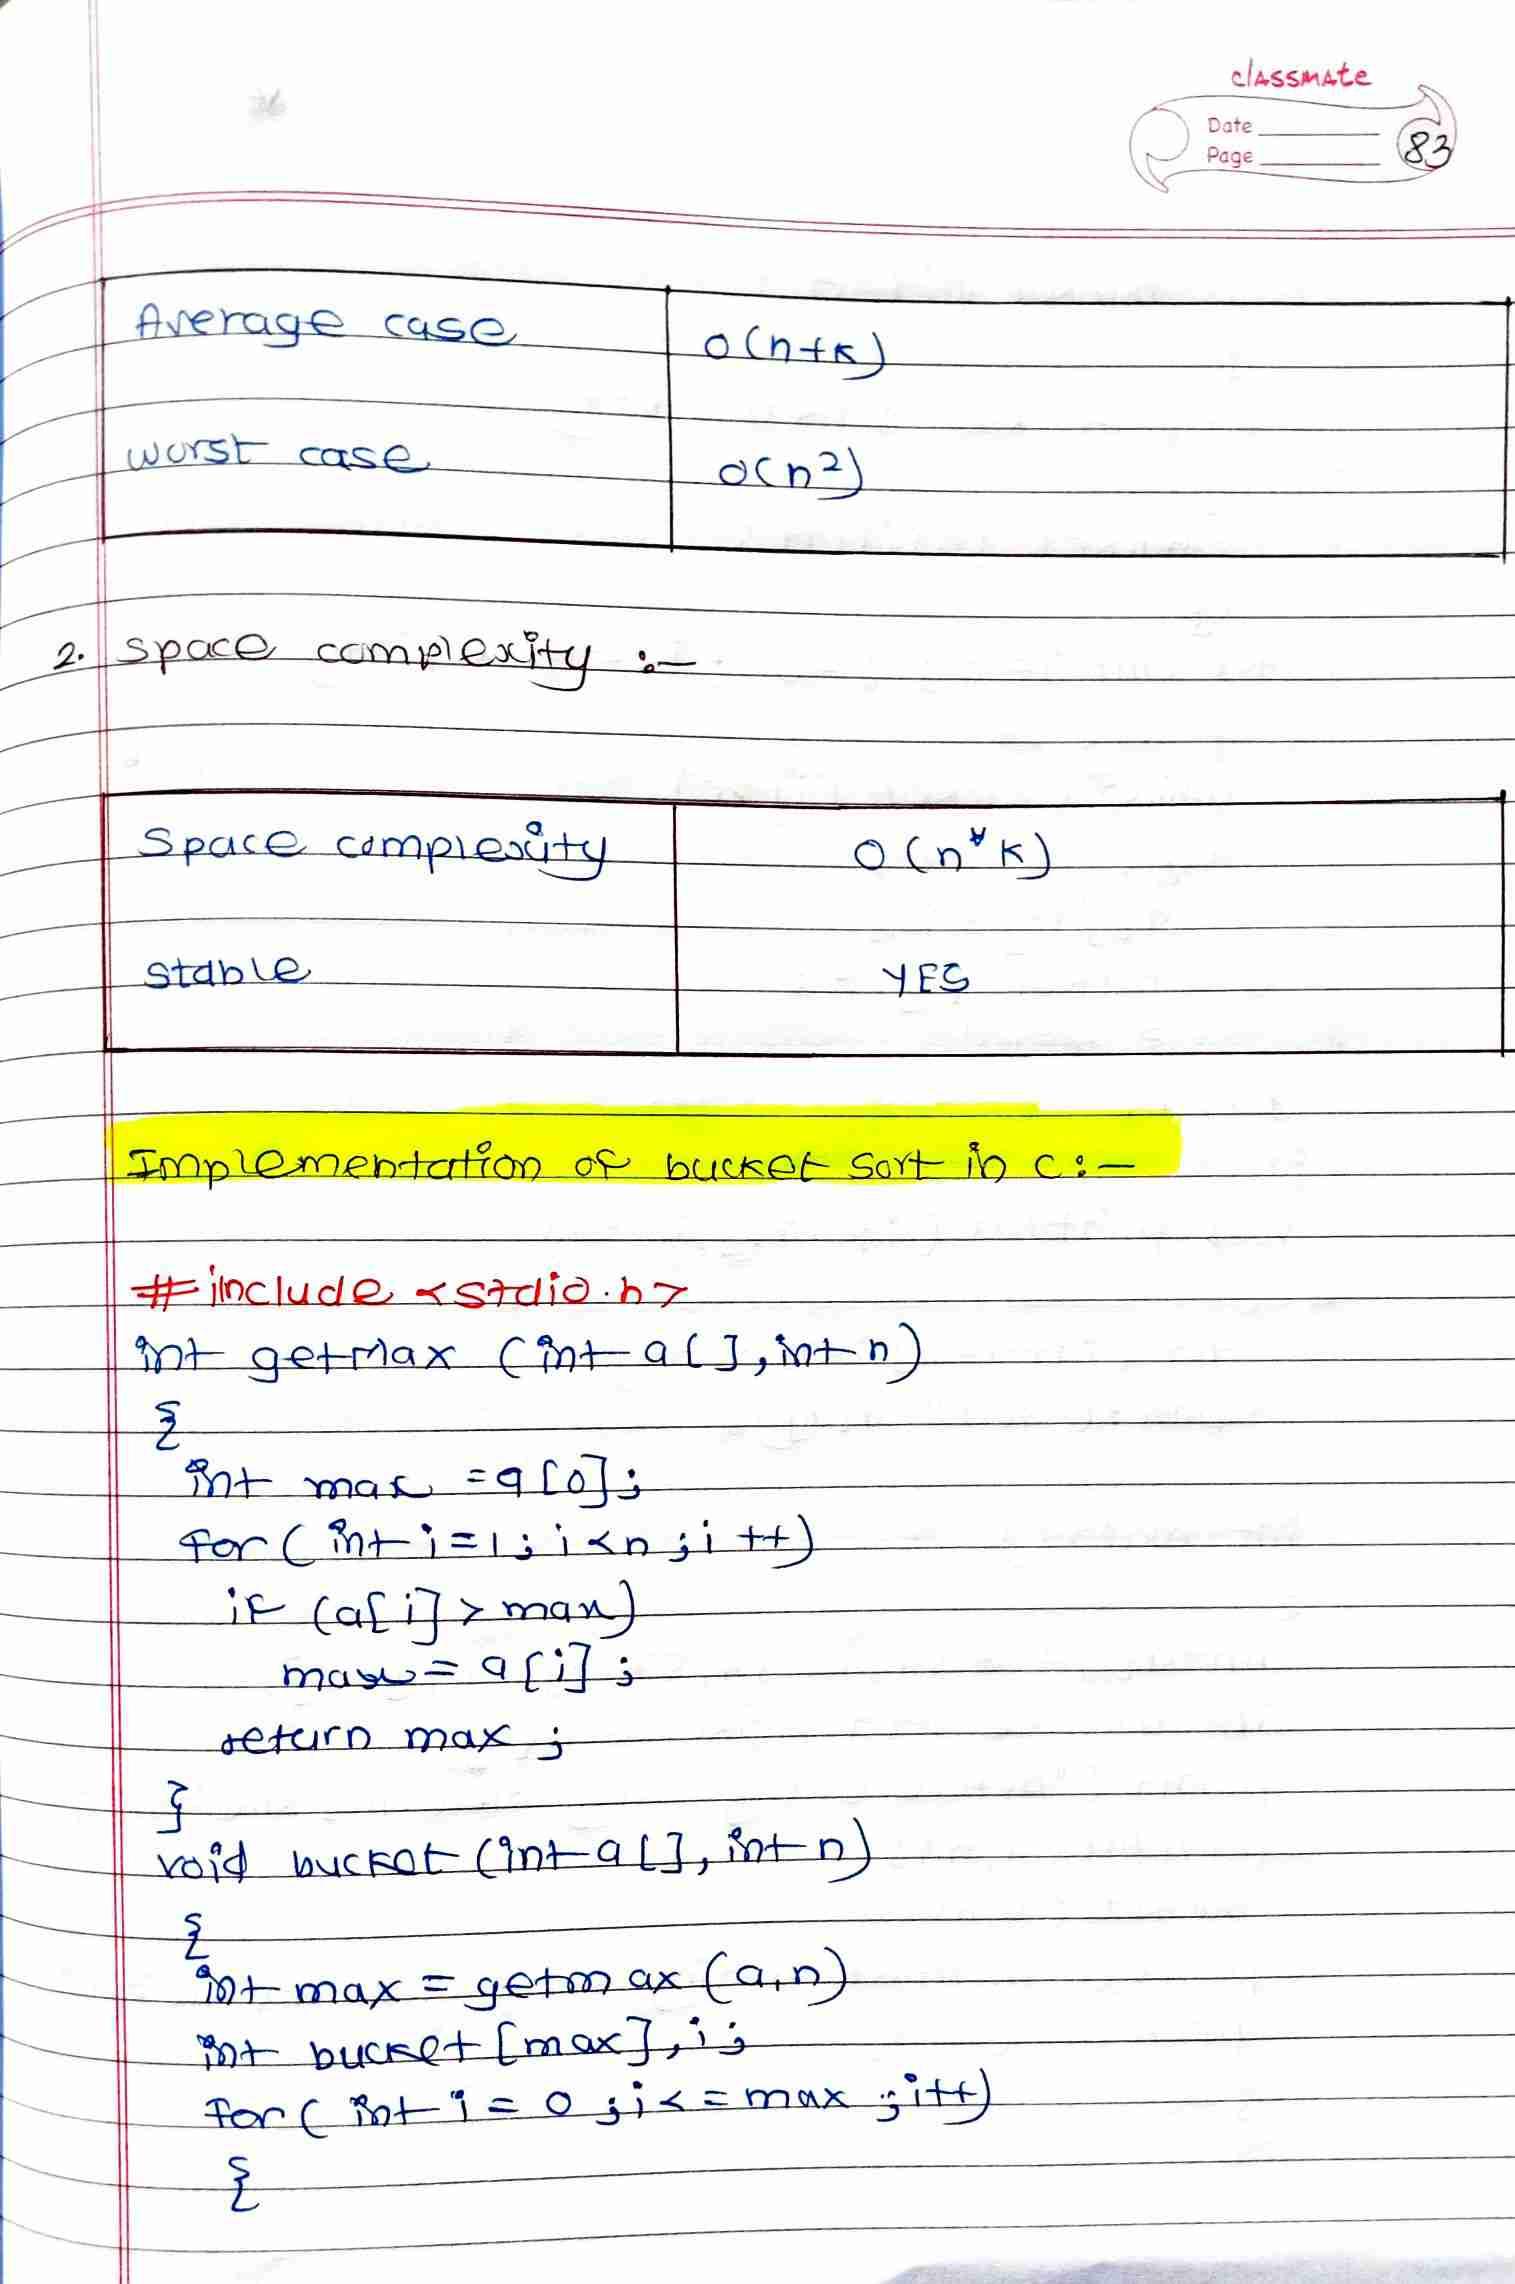 classmate
Date
Page 83
Average case O(n+k)
worst case O(n2)
2. Space complexity :-
Space complexity O(n*k)
stable YES
Implementation of bucket sort in c:-
#include <stdio.h>
int getMax (int a[], int n)
{
int max = a[0];
for( int i=1; i<n ;i++)
if (a[i] > max)
max = a[i];
return max ;
}
void bucket (int a[], int n)
{
int max = getmax (a,n)
int bucket [max], i;
for( int i = 0 ;i<= max ;i++)
{